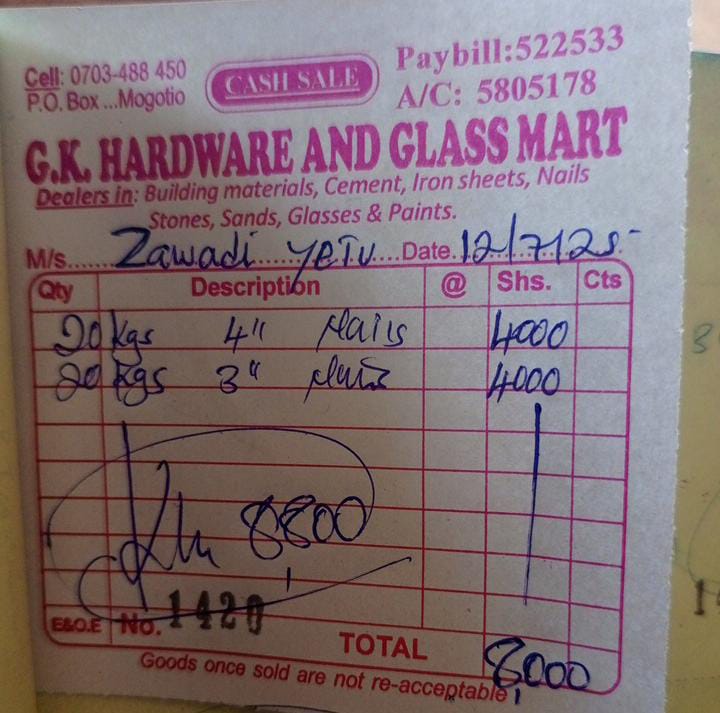 Cell: 0703-488 450
P.O. Box ...Mogotio
CASH SALE
Paybill:522533
A/C: 5805178
G.K. HARDWARE AND GLASS MART
Dealers in: Building materials, Cement, Iron sheets, Nails
Stones, Sands, Glasses & Paints.
M/s......Zawadi yetu....Date 12/7/25
Qty Description @ Shs. Cts
20 kgs 4" Nails 4000
20 kgs 3" Nails 4000
8800
E&O.E No. 1420
TOTAL 8000
Goods once sold are not re-acceptable